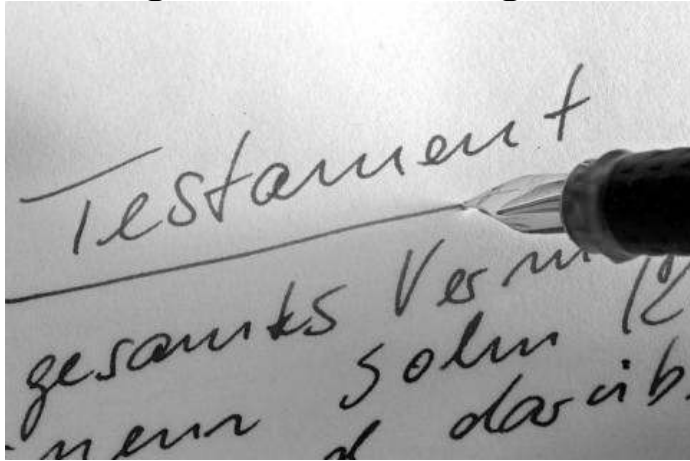 Testament
gesamtes Verm
mein Sohn
d darüb